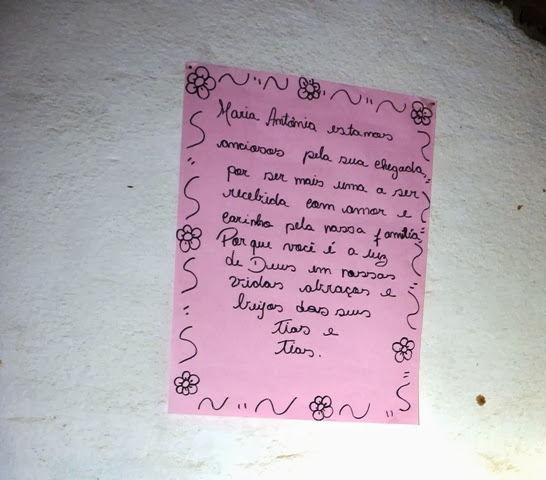 Maria Antônia estamos
anciosos pela sua chegada,
por ser mais uma a ser
recebida com amor e
carinho pela nossa família
Porque você é a luz
de Deus em nossas
vidas abraços e
beijos dos seus
Tios e
Tias.